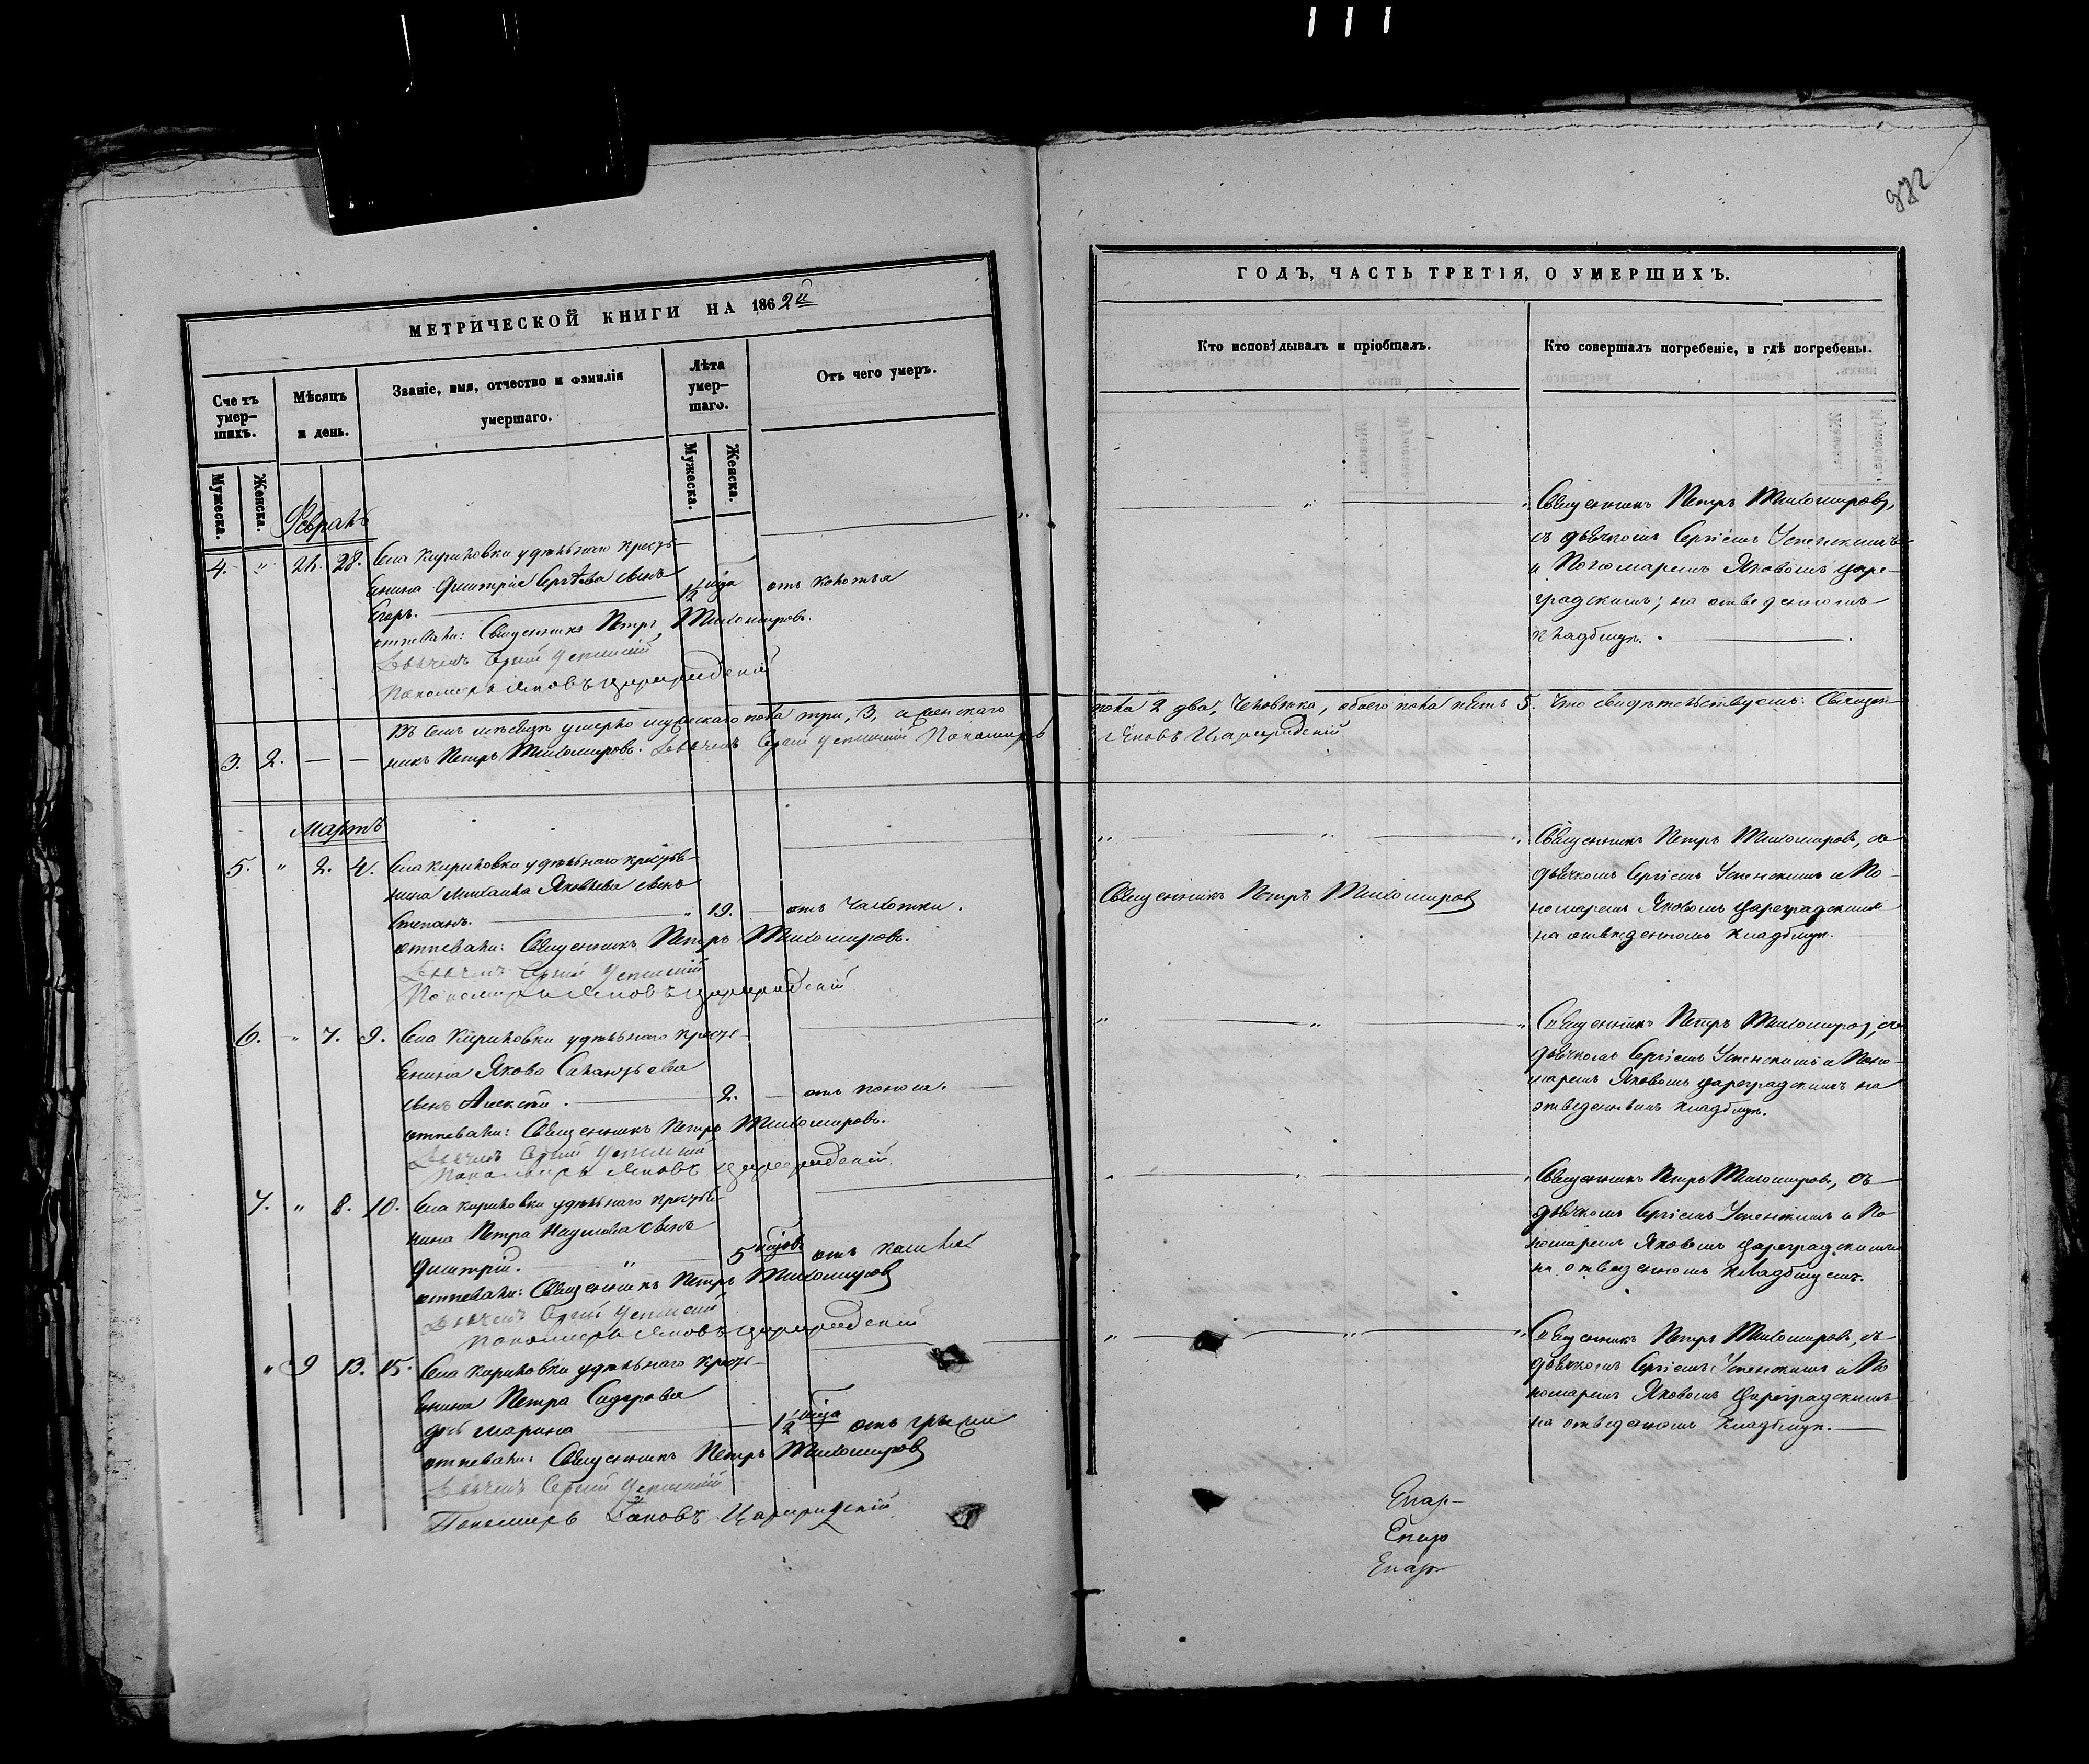 МЕТРИЧЕСКОЙ КНИГИ НА 1862й
Сче тъ умер-шихъ.
Мѣсяцъ и день.
Званіе, имя, отчество и фамилія умершаго.
Лѣта умер-шаго.
Отъ чего умеръ.
Мужеска.
Женска.
Мужеска.
Женска.
Февраль
4. " 26. 28. Села Кириловки удѣльнаго кресть-
янина Димитрія Сергѣева сынъ
Егоръ. 1/2 года отъ колотья
отпевали: Священникъ Петръ Тихомировъ.
Дьячекъ Сергій Успенскій
Пономарь Яковъ Цареградскій
Въ семъ мѣсяцѣ умерло мужскаго пола три, 3, и женскаго
3. 2. — — никъ Петръ Тихомировъ. Дьячекъ Сергій Успенскій Пономарь
Мартъ
5. " 2. 4. Села Кириловки удѣльнаго крестья-
нина Михаила Яковлева сынъ
Степанъ. " 19. отъ чахотки.
отпевали: Священникъ Петръ Тихомировъ.
Дьячекъ Сергій Успенскій
Пономарь Яковъ Цареградскій
6. " 7. 9. Села Кириловки удѣльнаго кресть-
янина Якова
сынъ Алексѣй. 2. отъ поноса.
отпевали: Священникъ Петръ Тихомировъ.
Дьячекъ Сергій Успенскій
Пономарь Яковъ Цареградскій
7. " 8. 10. Села Кириловки удѣльнаго крестья-
нина Петра Наумова сынъ
Димитрій. " 5 отъ кашля
отпевали: Священникъ Петръ Тихомировъ
Дьячекъ Сергій Успенскій
Пономарь Яковъ Цареградскій
" 9 13. 15. Села Кириловки удѣльнаго кресть-
янина Петра Сидорова
дочь Марина 1/2 года отъ грыжи
отпевали: Священникъ Петръ Тихомировъ
Дьячекъ Сергій Успенскій
Пономарь Яковъ Цареградскій
ГОДЪ, ЧАСТЬ ТРЕТІЯ, О УМЕРШИХЪ.
Кто исповѣдывалъ и пріобщалъ.
Кто совершалъ погребеніе, и гдѣ погребены.
Священникъ Петръ Тихомировъ,
съ дьячкомъ Сергіемъ Успенскимъ
и Пономаремъ Яковомъ Царе-
градскимъ; на отведенномъ
кладбищѣ.
пола 2 два, человѣка, обоего пола пять 5. Что свидѣтельствуемъ: Священ-
Яковъ Цареградскій
Священникъ Петръ Тихомировъ, съ
дьячкомъ Сергіемъ Успенскимъ и По-
Священникъ Петръ Тихомировъ
номаремъ Яковомъ Цареградскимъ
на отведенномъ кладбищѣ.
Священникъ Петръ Тихомировъ, съ
дьячкомъ Сергіемъ Успенскимъ и Поно-
маремъ Яковомъ Цареградскимъ на
отведенномъ кладбищѣ.
Священникъ Петръ Тихомировъ, съ
дьячкомъ Сергіемъ Успенскимъ и По
номаремъ Яковомъ Цареградскимъ
на отведенномъ кладбищемъ.
Священникъ Петръ Тихомировъ, съ
дьячкомъ Сергіемъ Успенскимъ и По
номаремъ Яковомъ Цареградскимъ
на отведенномъ кладбищѣ.
Епар-
Епар
Епар